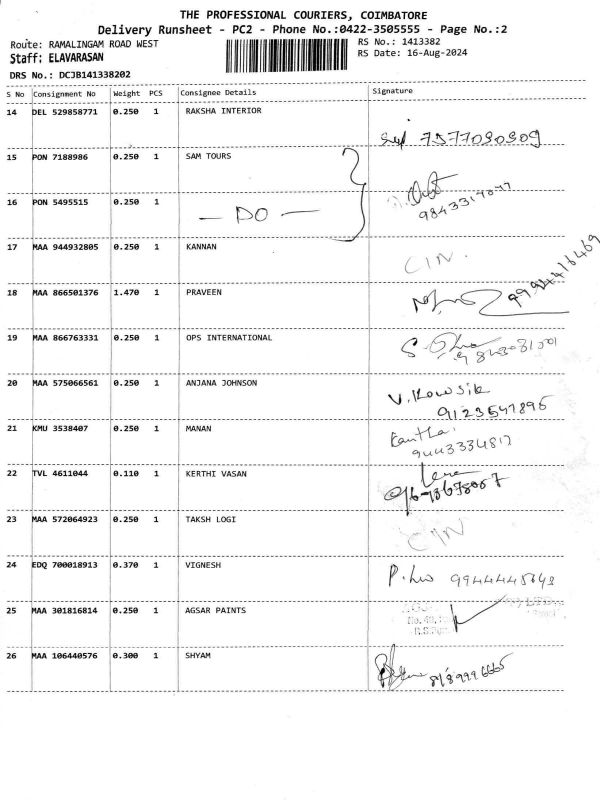 THE PROFESSIONAL COURIERS, COIMBATORE
Delivery Runsheet - PC2 - Phone No.:0422-3505555 - Page No.:2
Route: RAMALINGAM ROAD WEST RS No.: 1413382
Staff: ELAVARASAN RS Date: 16-Aug-2024
DRS No.: DCJB141338202
S No Consignment No Weight PCS Consignee Details Signature
14 DEL 529858771 0.250 1 RAKSHA INTERIOR
7377030309
15 PON 7188986 0.250 1 SAM TOURS
16 PON 5495515 0.250 1
— DO —
17 MAA 944932805 0.250 1 KANNAN
CIN.
18 MAA 866501376 1.470 1 PRAVEEN
9994416469
19 MAA 866763331 0.250 1 OPS INTERNATIONAL
20 MAA 575066561 0.250 1 ANJANA JOHNSON
V. Kowsik
9123547895
21 KMU 3538407 0.250 1 MANAN
Kantha.
9443334817
22 TVL 4611044 0.110 1 KERTHI VASAN
23 MAA 572064923 0.250 1 TAKSH LOGI
CIN
24 EDQ 700018913 0.370 1 VIGNESH
25 MAA 301816814 0.250 1 AGSAR PAINTS
26 MAA 106440576 0.300 1 SHYAM